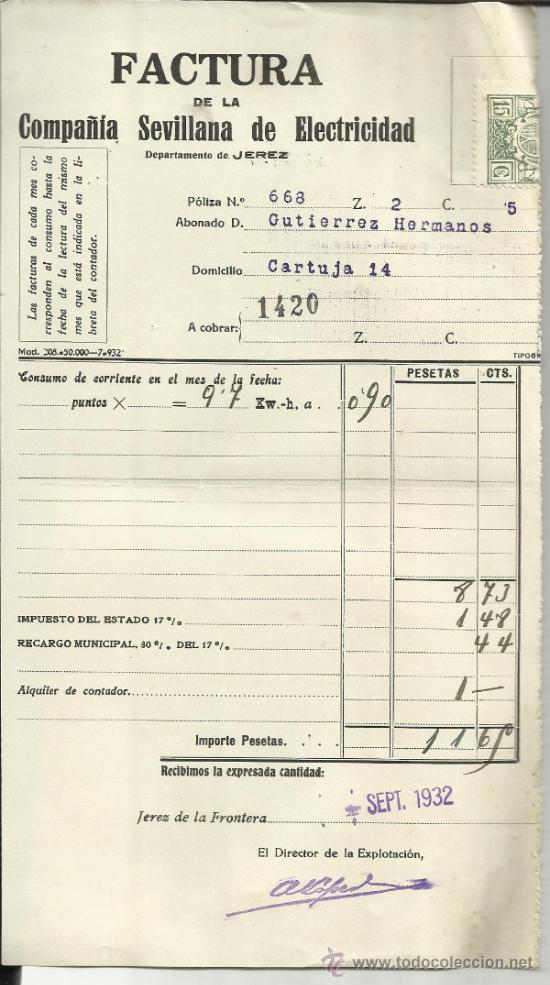 FACTURA
DE LA
Compañía Sevillana de Electricidad
Departamento de JEREZ
15 Cs
Las facturas de cada mes co-
rresponden al consumo hasta la
fecha de la lectura del mismo
mes que está indicada en la li-
breta del contador.
Póliza N.º 668 Z. 2 C. 5
Abonado D. Gutierrez Hermanos
Domicilio Cartuja 14
1420
A cobrar: Z. C.
Mod. 208.-50.000—7-932 TIPOGR
Consumo de corriente en el mes de la fecha: PESETAS CTS.
puntos × = 9'7 Kw.-h. a 0'90
8 73
IMPUESTO DEL ESTADO 17 º/o 1 48
RECARGO MUNICIPAL, 30 º/o DEL 17 º/o 44
Alquiler de contador. 1 —
Importe Pesetas. 11 65
Recibimos la expresada cantidad:
SEPT. 1932
Jerez de la Frontera
El Director de la Explotación,
todocoleccion
http://www.todocoleccion.net